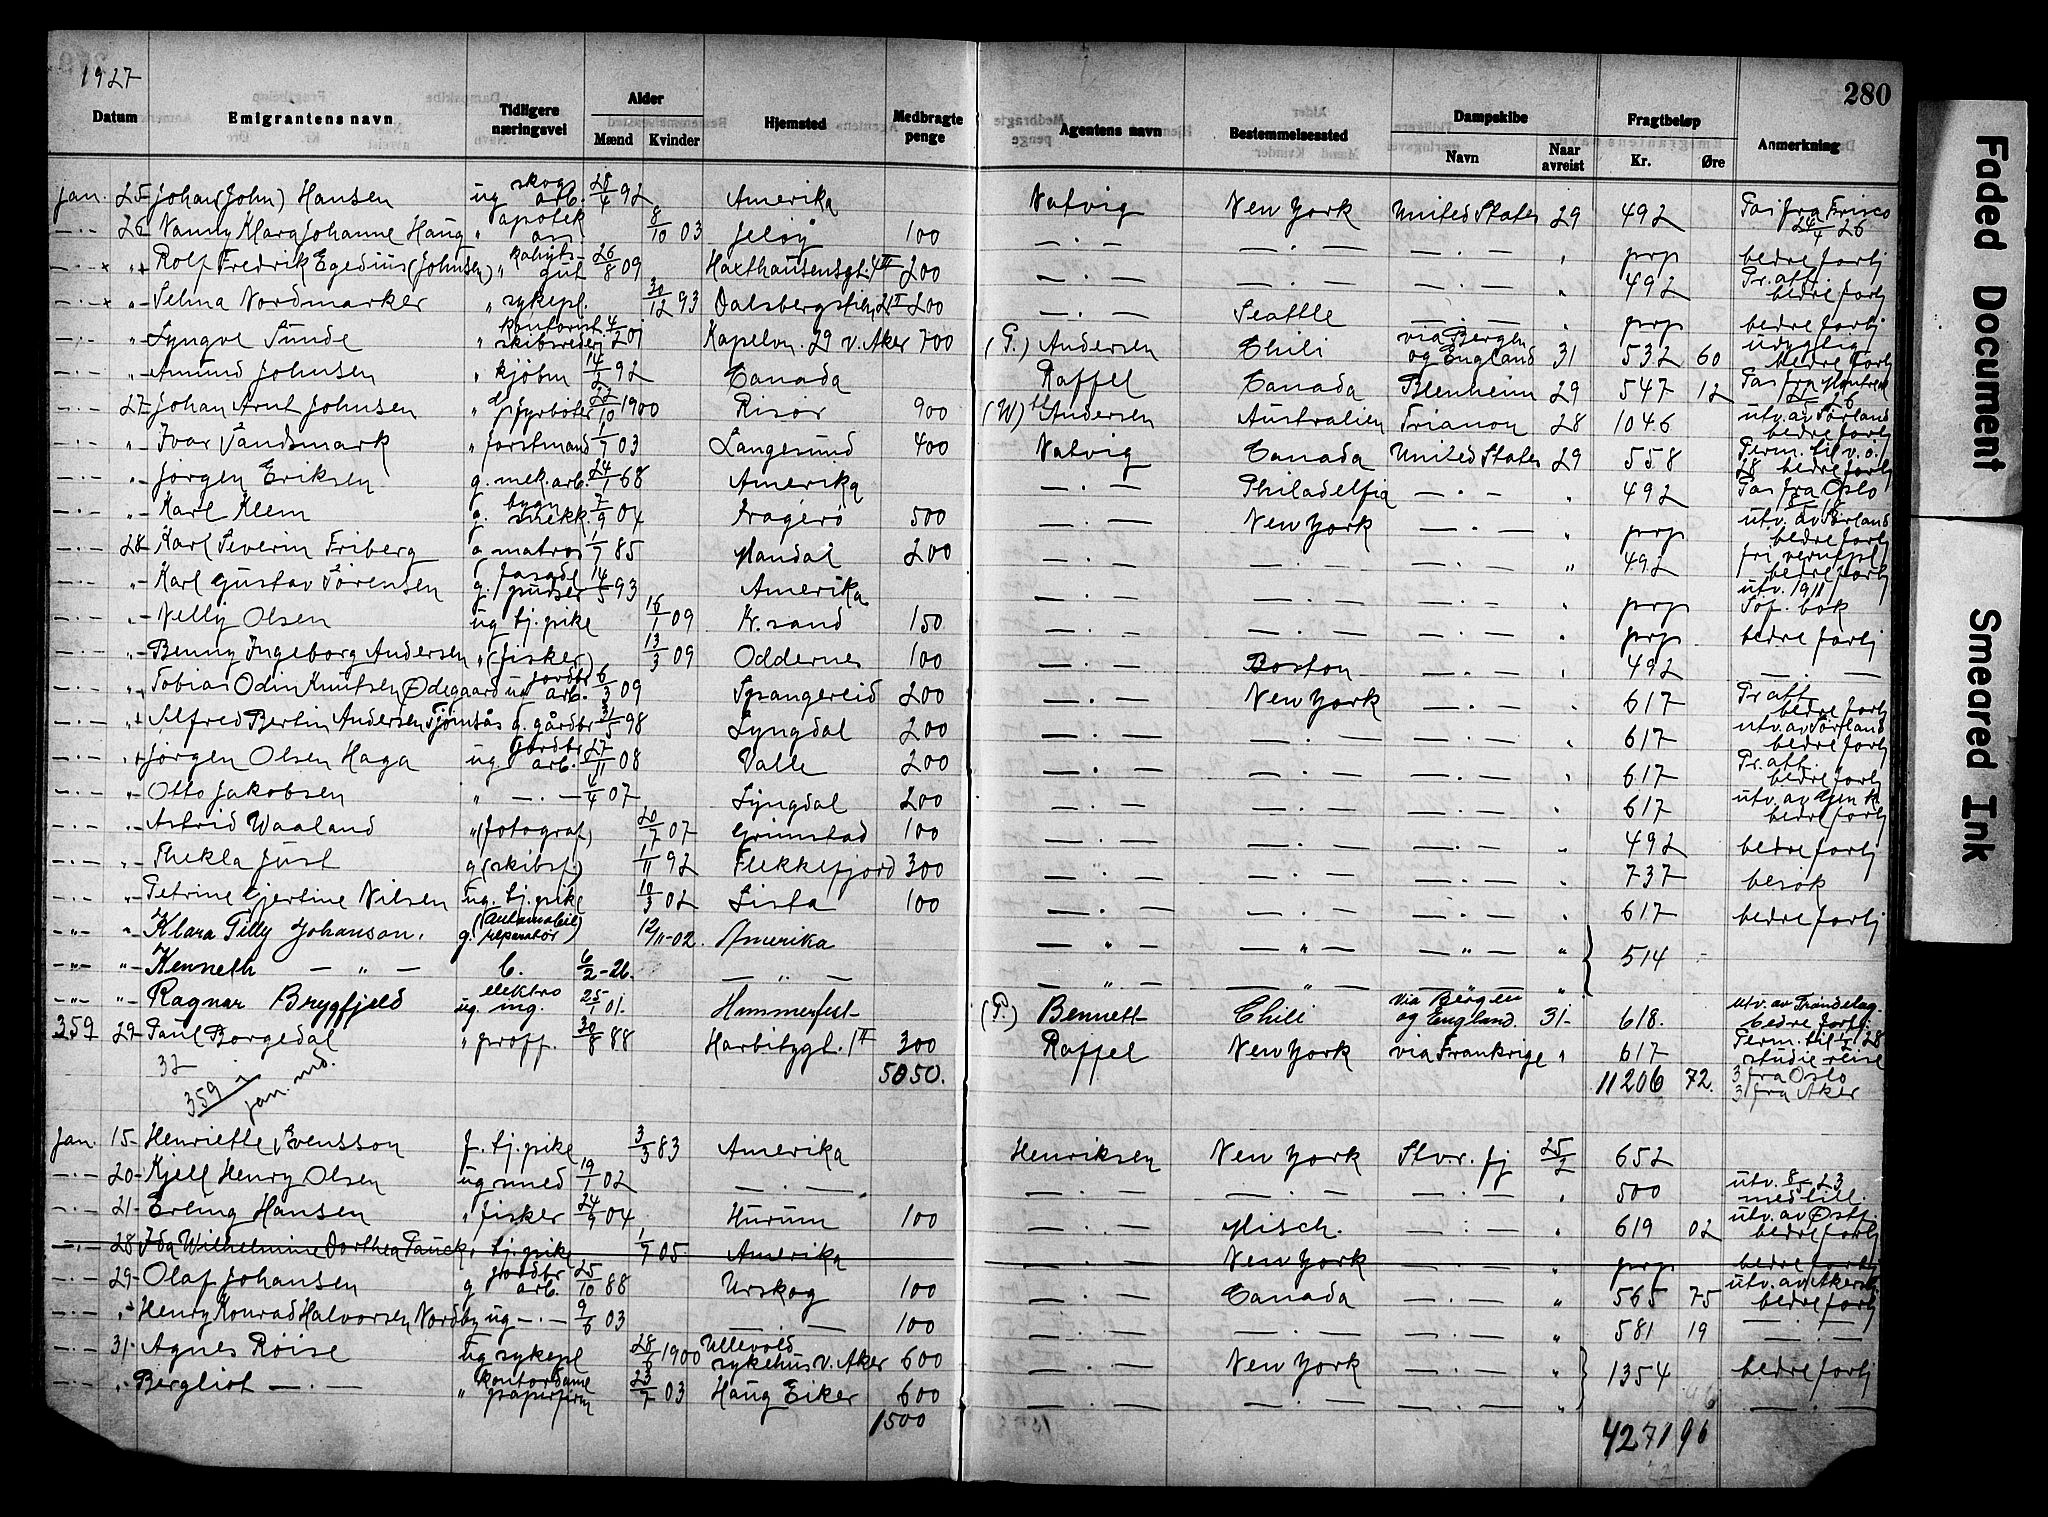 1927
280
Datum Emigrantens navn Tidligere næringsvei Alder Mænd Kvinder Hjemsted Medbragte penge Agentens navn Bestemmelsessted Dampskibe Navn Naar avreist Fragtbeløp Kr. Øre Anmerkning
Jan. 25 Johan (John) Hansen ug skogsarb. 28/4 92 Amerika Natvig New York United States 29 492 Pas fra Frisco 24/4 26
—·— 26 Nanny Klara Johanne Haug " apotek 8/10 03 Jeløy 100 —·— —·— —·— " prp bedre forhj
—·— x "+ Rolf Fredrik Egediüs (Johnsen) " gut 26/8 09 Haxthausensgt. 4 III 200 —·— —·— —·— " 492 Pr. att. bedre forhj
—·— x "- Selma Nordmarker " sykepl. 30/12 93 Dalsbergstien 21 I 200 —·— Seattle —·— " prp bedre forhj
"- Syngve Sunde " kontorist skibsrederi 4/2 01 Kapelvn. 29 v. Aker 700 (G.) Andersen Chili via Bergen og England 31 532 60 bedre forhj
"- Amund Johnsen " kjøbm 14/2 92 Canada Raffel Canada Blenheim 29 547 12 Pas fra Montreal
—·— 27 Johan Arnt Johnsen fyrbøter 22/10 1900 Risør 900 (W) Andersen Australien Trianon 28 1046 utv. av Sørland bedre forhj
"- Ivar Sandsmark " forstmand 1/7 03 Langesund 400 Natvig Canada United States 29 558 Perm. til 28 bedre forhj
"- Jørgen Eriksen g. mek. arb. 24/1 68 Amerika —·— Philadelfia —·— " 492 Pas fra Oslo
—·— "- Karl Klem g. bygn snekk. 7/9 04 Kragerø 500 —·— New York —·— " prp utv. av Sørland bedre forhj
—·— 28 Karl Severin Friberg g matros 1/7 85 Mandal 200 —·— —·— —·— " 492 fri vernepl bedre forhj
—·— "- Karl Gustav Sørensen g. fasadepudser 14/5 93 Amerika —·— —·— —·— " prp utv. 1911 Søf. bok
—·— "- Nelly Olsen ug tj. pike 16/1 09 Kr. sand 150 —·— —·— —·— " prp. bedre forhj
—·— "- Benny Ingeborg Andersen " (fisker) 13/3 09 Oddernes 100 —·— Boston —·— " 492 —·—
—·— "- Tobias Odin Knutsen Ødegaard ug jordbr arb. 6/3 09 Spangereid 200 —·— New York —·— " 617 Pr. att. bedre forhj
—·— "+ Alfred Bertin Andersen Tjømsås g. gårdbr 31/5 98 Lyngdal 200 —·— —·— —·— " 617 utv. av Sørland bedre forhj
—·— "+ Jørgen Olsen Haga ug. jordbr arb. 27/11 08 Valle 200 —·— —·— —·— " 617 Pr. att. bedre forhj
—·— "- Otto Jakobsen " —·— 4 07 Lyngdal 200 —·— —·— —·— " 617 bedre forhj
—·— "- Astrid Waaland " (fotograf) 20/7 07 Grimstad 100 —·— —·— —·— " 492 bedre forhj
—·— "- Thekla Just g (skibsf) 1/11 92 Flekkefjord 300 —·— —·— —·— " 737 besøk
—·— "- Petrine Gjertine Nilsen ug. tj. pike 10/3 02 Lista 100 —·— —·— —·— " 617 bedre forhj
—"— " Klara Tilly Johanson. g. (automobilreparatør) 12/11-02. Amerika —"— —"— —"— " 514
—"— " Kenneth —"— b. 6/2-26. —"— —"— —"— —"— "
—"— "- Ragnar Brygfjeld ug. elektro ing. 25/1 01. Hammerfest (P.) Bennett Chili via Bergen og England. 31 618. utv. av Trøndelag bedre forhj.
359 29 Paul Borgedal " proff. 30/8 88 Harbitzgt. 1 II 300 Raffel New York via Frankrige " 617 Perm. til 28 studiereise
32 5050. 11206 72. 3 fra Oslo
359 i jan. md. 3 fra Aker
Jan. 15 Henriette Svensson f. tj. pike 3/3 83 Amerika Henriksen New York Stv. fj 25/2 652
—·— 20 Kjell Henry Olsen ug smed 19/1 02 —·— —·— —·— —·— " 500 utv. 8/5 23 med till.
—·— 21 Erling Hansen " fisker 24/9 04 Hurum 100 —·— Misch. —·— " 619 02 utv. av Østf. bedre forhj
—·— 28 Ida Wilhelmine Dorthea Pauck " tj. pike 1/7 05 Amerika New York " prp bedre forhj
—·— 29 Olaf Johansen g jordbr arb. 25/10 88 Urskog 100 —·— Canada —·— " 565 75 utv. av Akersh bedre forhj
—·— "+ Henry Konrad Halvorsen Nordby ug —·— 9/6 03 —·— 100 —·— —·— —·— " 581 19 —·—
—·— 31 Agnes Røise ug sykepl 28/8 1900 Ullevold sykehus v. Aker 600 —·— New York —·— " 1354 bedre forhj
—·— "- Bergliot —·— " kontordame papirfirm 23/7 03 Haug Eiker 600 —·— —·— —·— " —·—
1500 4271 96
Faded Document
Smeared Ink